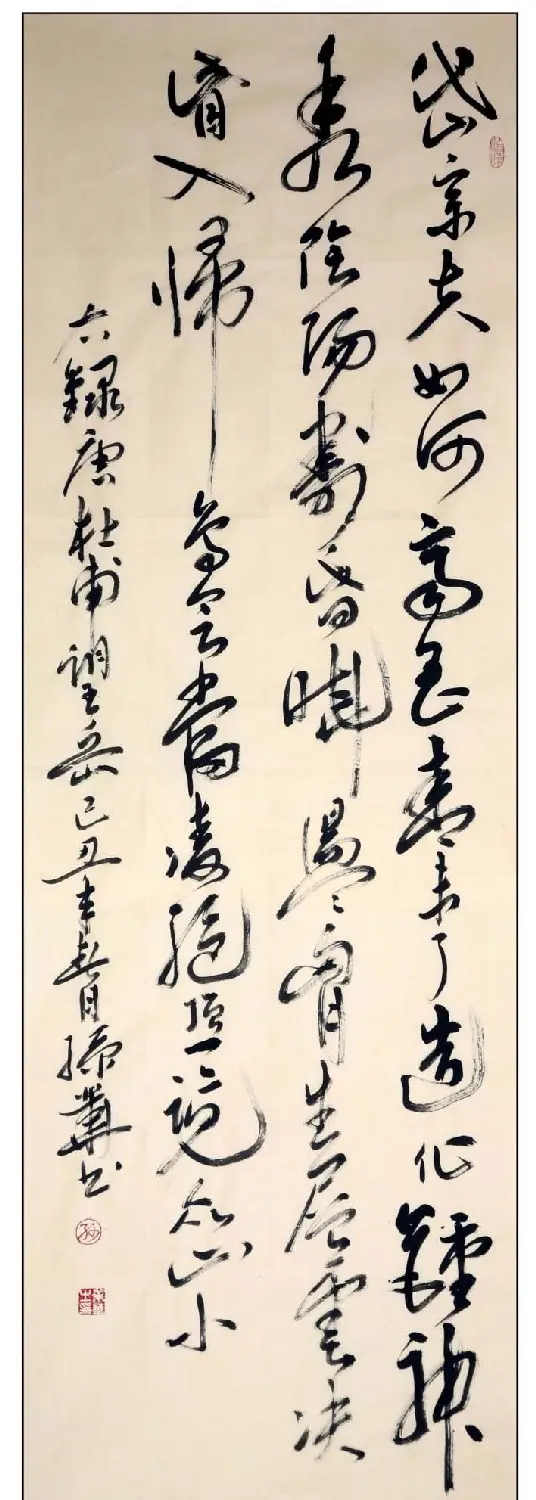 岱宗夫如何齊魯青未了造化鍾神
秀陰陽割昏曉盪胷生層雲決
眥入歸鳥會當凌絕頂一覽众山小
右錄唐杜甫望岳己丑年春月孫書